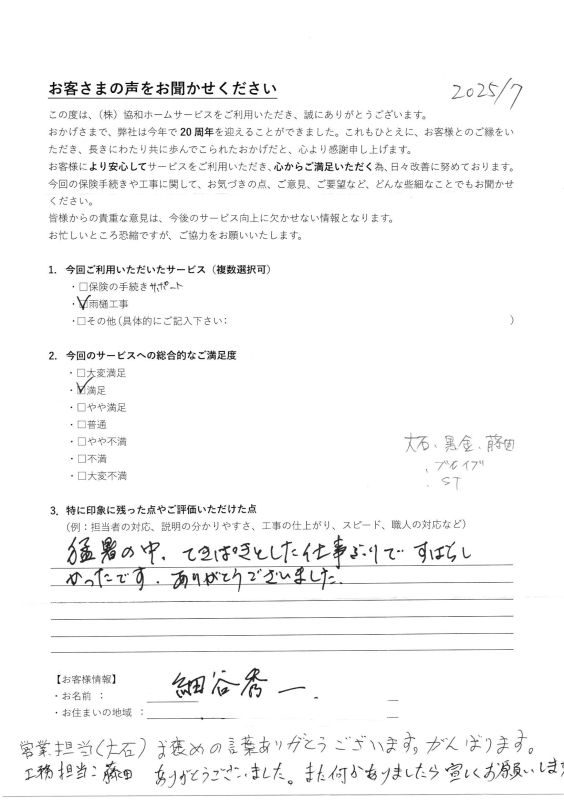 お客さまの声をお聞かせください
2025/7
この度は、（株）協和ホームサービスをご利用いただき、誠にありがとうございます。
おかげさまで、弊社は今年で20周年を迎えることができました。これもひとえに、お客様とのご縁をい
ただき、長きにわたり共に歩んでこられたおかげだと、心より感謝申し上げます。
お客様により安心してサービスをご利用いただき、心からご満足いただく為、日々改善に努めております。
今回の保険手続きや工事に関して、お気づきの点、ご意見、ご要望など、どんな些細なことでもお聞かせ
ください。
皆様からの貴重な意見は、今後のサービス向上に欠かせない情報となります。
お忙しいところ恐縮ですが、ご協力をお願いいたします。
1. 今回ご利用いただいたサービス（複数選択可）
・□保険の手続きサポート
・☑雨樋工事
・□その他（具体的にご記入下さい： ）
2. 今回のサービスへの総合的なご満足度
・□大変満足
・☑満足
・□やや満足
・□普通
・□やや不満
・□不満
・□大変不満
大石、黒金、藤田
、ブレイブ
・ST
3. 特に印象に残った点やご評価いただけた点
（例：担当者の対応、説明の分かりやすさ、工事の仕上がり、スピード、職人の対応など）
猛暑の中、てきぱきとした仕事ぶりですばらし
かったです。ありがとうございました。
【お客様情報】
・お名前 ： 細谷秀一
・お住まいの地域 ：
営業担当（大石）お褒めの言葉ありがとうございます。がんばります。
工務担当：藤田 ありがとうございました。また何かありましたら宜しくお願いします